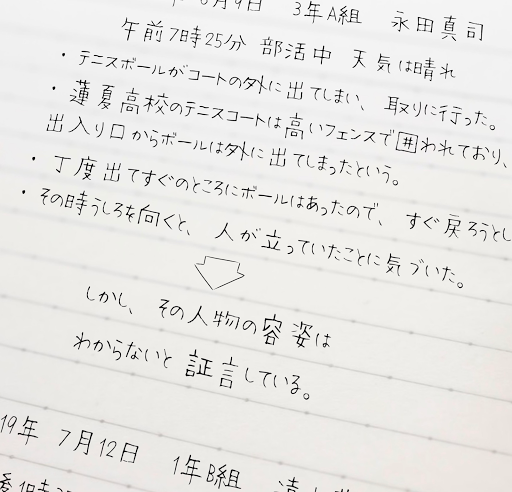 6月9日 3年A組 永田真司
午前7時25分 部活中 天気は晴れ
・テニスボールがコートの外に出てしまい、取りに行った。
・蓮夏高校のテニスコートは高いフェンスで囲われており、
出入り口からボールは外に出てしまったという。
・丁度出てすぐのところにボールはあったので、すぐ戻ろうとし
・その時うしろを向くと、人が立っていたことに気づいた。
しかし、その人物の容姿は
わからないと証言している。
19年 7月12日 1年B組